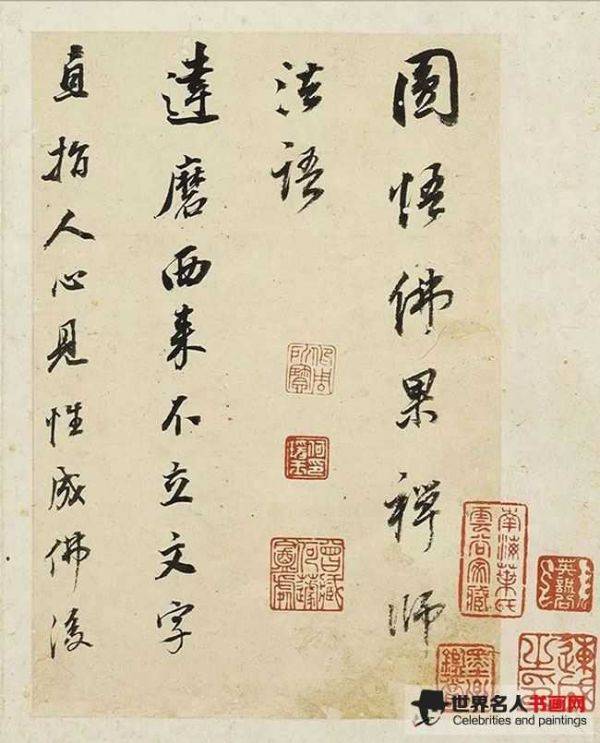 圓悟佛果禪師
法語
達磨西来不立文字
直指人心見性成佛後
南海葉氏
雲谷家藏
世界名人书画网
Celebrities and paintings